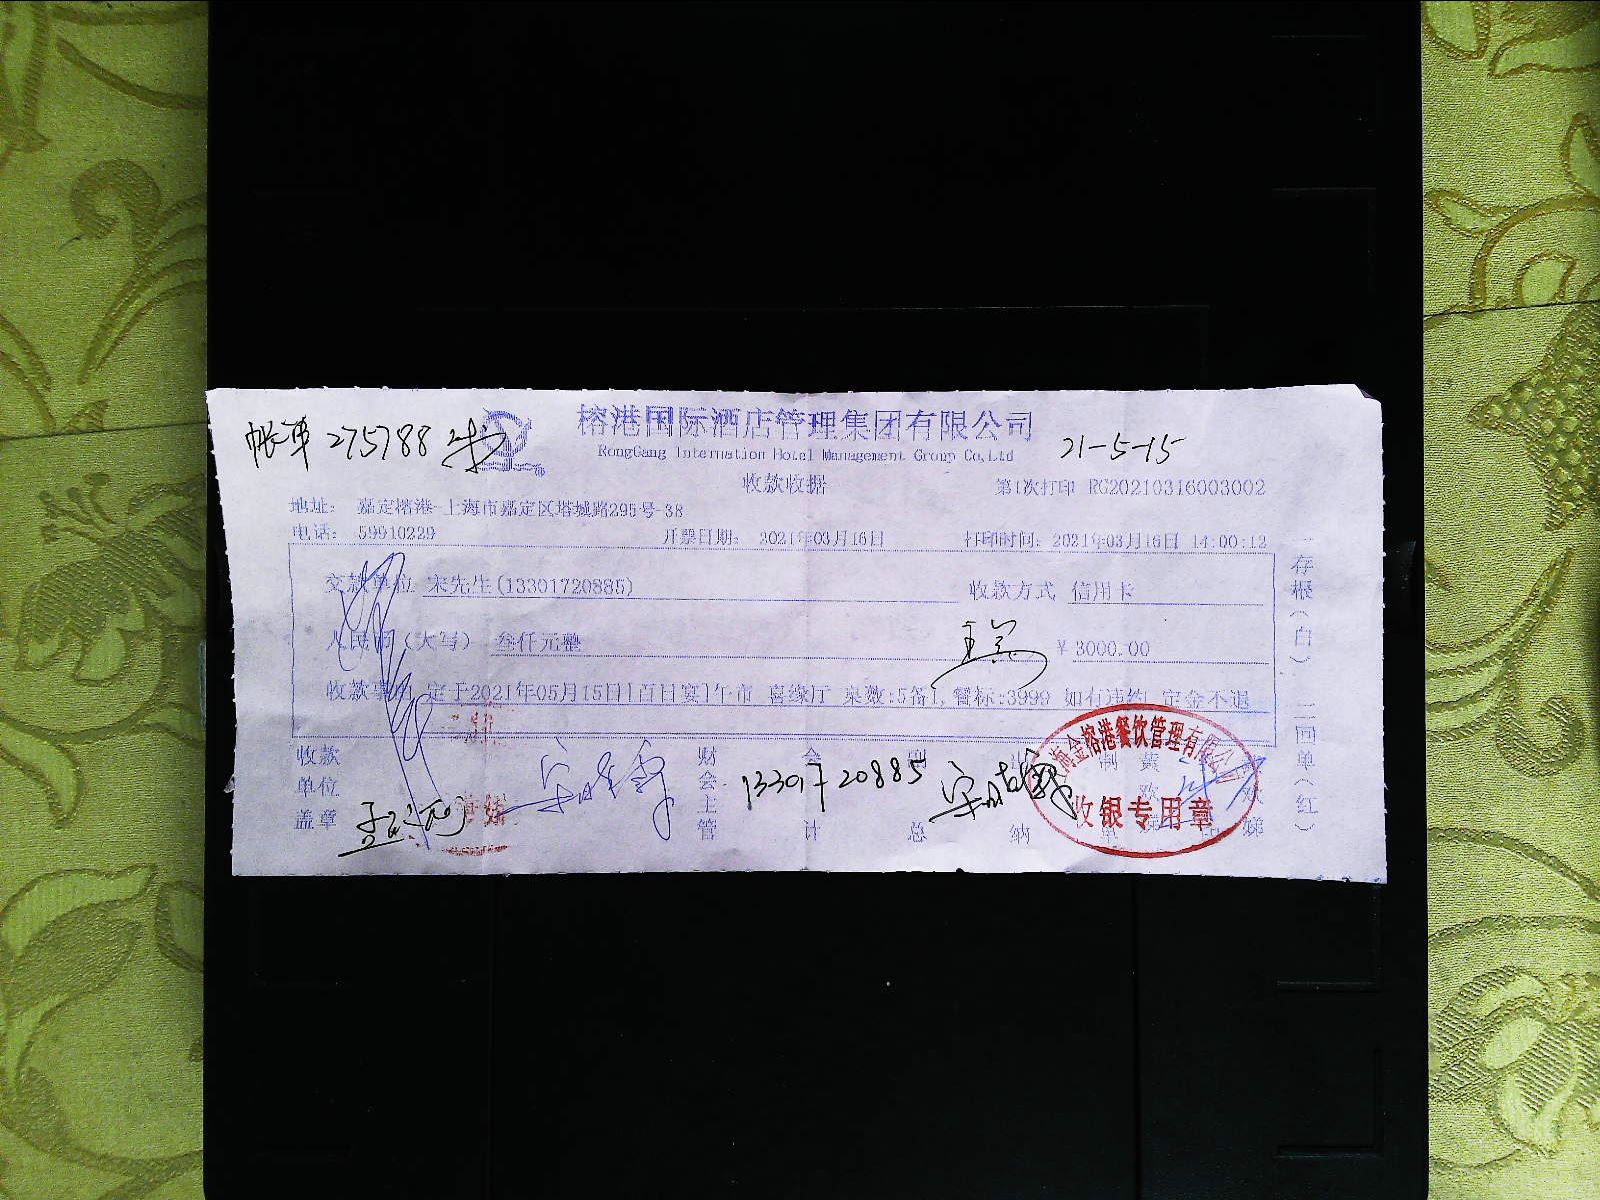 帐单 275788
榕港国际酒店管理集团有限公司
RongGang Internation Hotel Management Group Co,Ltd
21-5-15
收款收据
第1次打印 RG20210316003002
地址： 嘉定榕港-上海市嘉定区塔城路295号-38
电话： 59910229 开票日期： 2021年03月16日 打印时间：2021年03月16日 14:00:12
交款单位 宋先生(13301720885) 收款方式 信用卡
人民币（大写） 叁仟元整 ￥3000.00
收款事由 定于2021年05月15日[百日宴]午市 喜缘厅 桌数:5备1,餐标:3999 如有违约 定金不退
收款单位盖章
财会主管
会计
副总
出纳
制单
13301720885
金榕港餐饮管理有限公司
收银专用章
一存根（白）二回单（红）